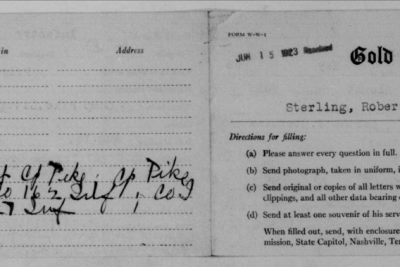 in Address
Cp Pike, Cp Pike,
162 Inf, Co I
Inf
FORM W-W-1
JUN 15 1923 Received
Gold
Sterling, Rober
Directions for filling:
(a) Please answer every question in full.
(b) Send photograph, taken in uniform, i
(c) Send original or copies of all letters w
clippings, and all other data bearing o
(d) Send at least one souvenir of his serv
When filled out, send, with enclosure
mission, State Capitol, Nashville, Ten